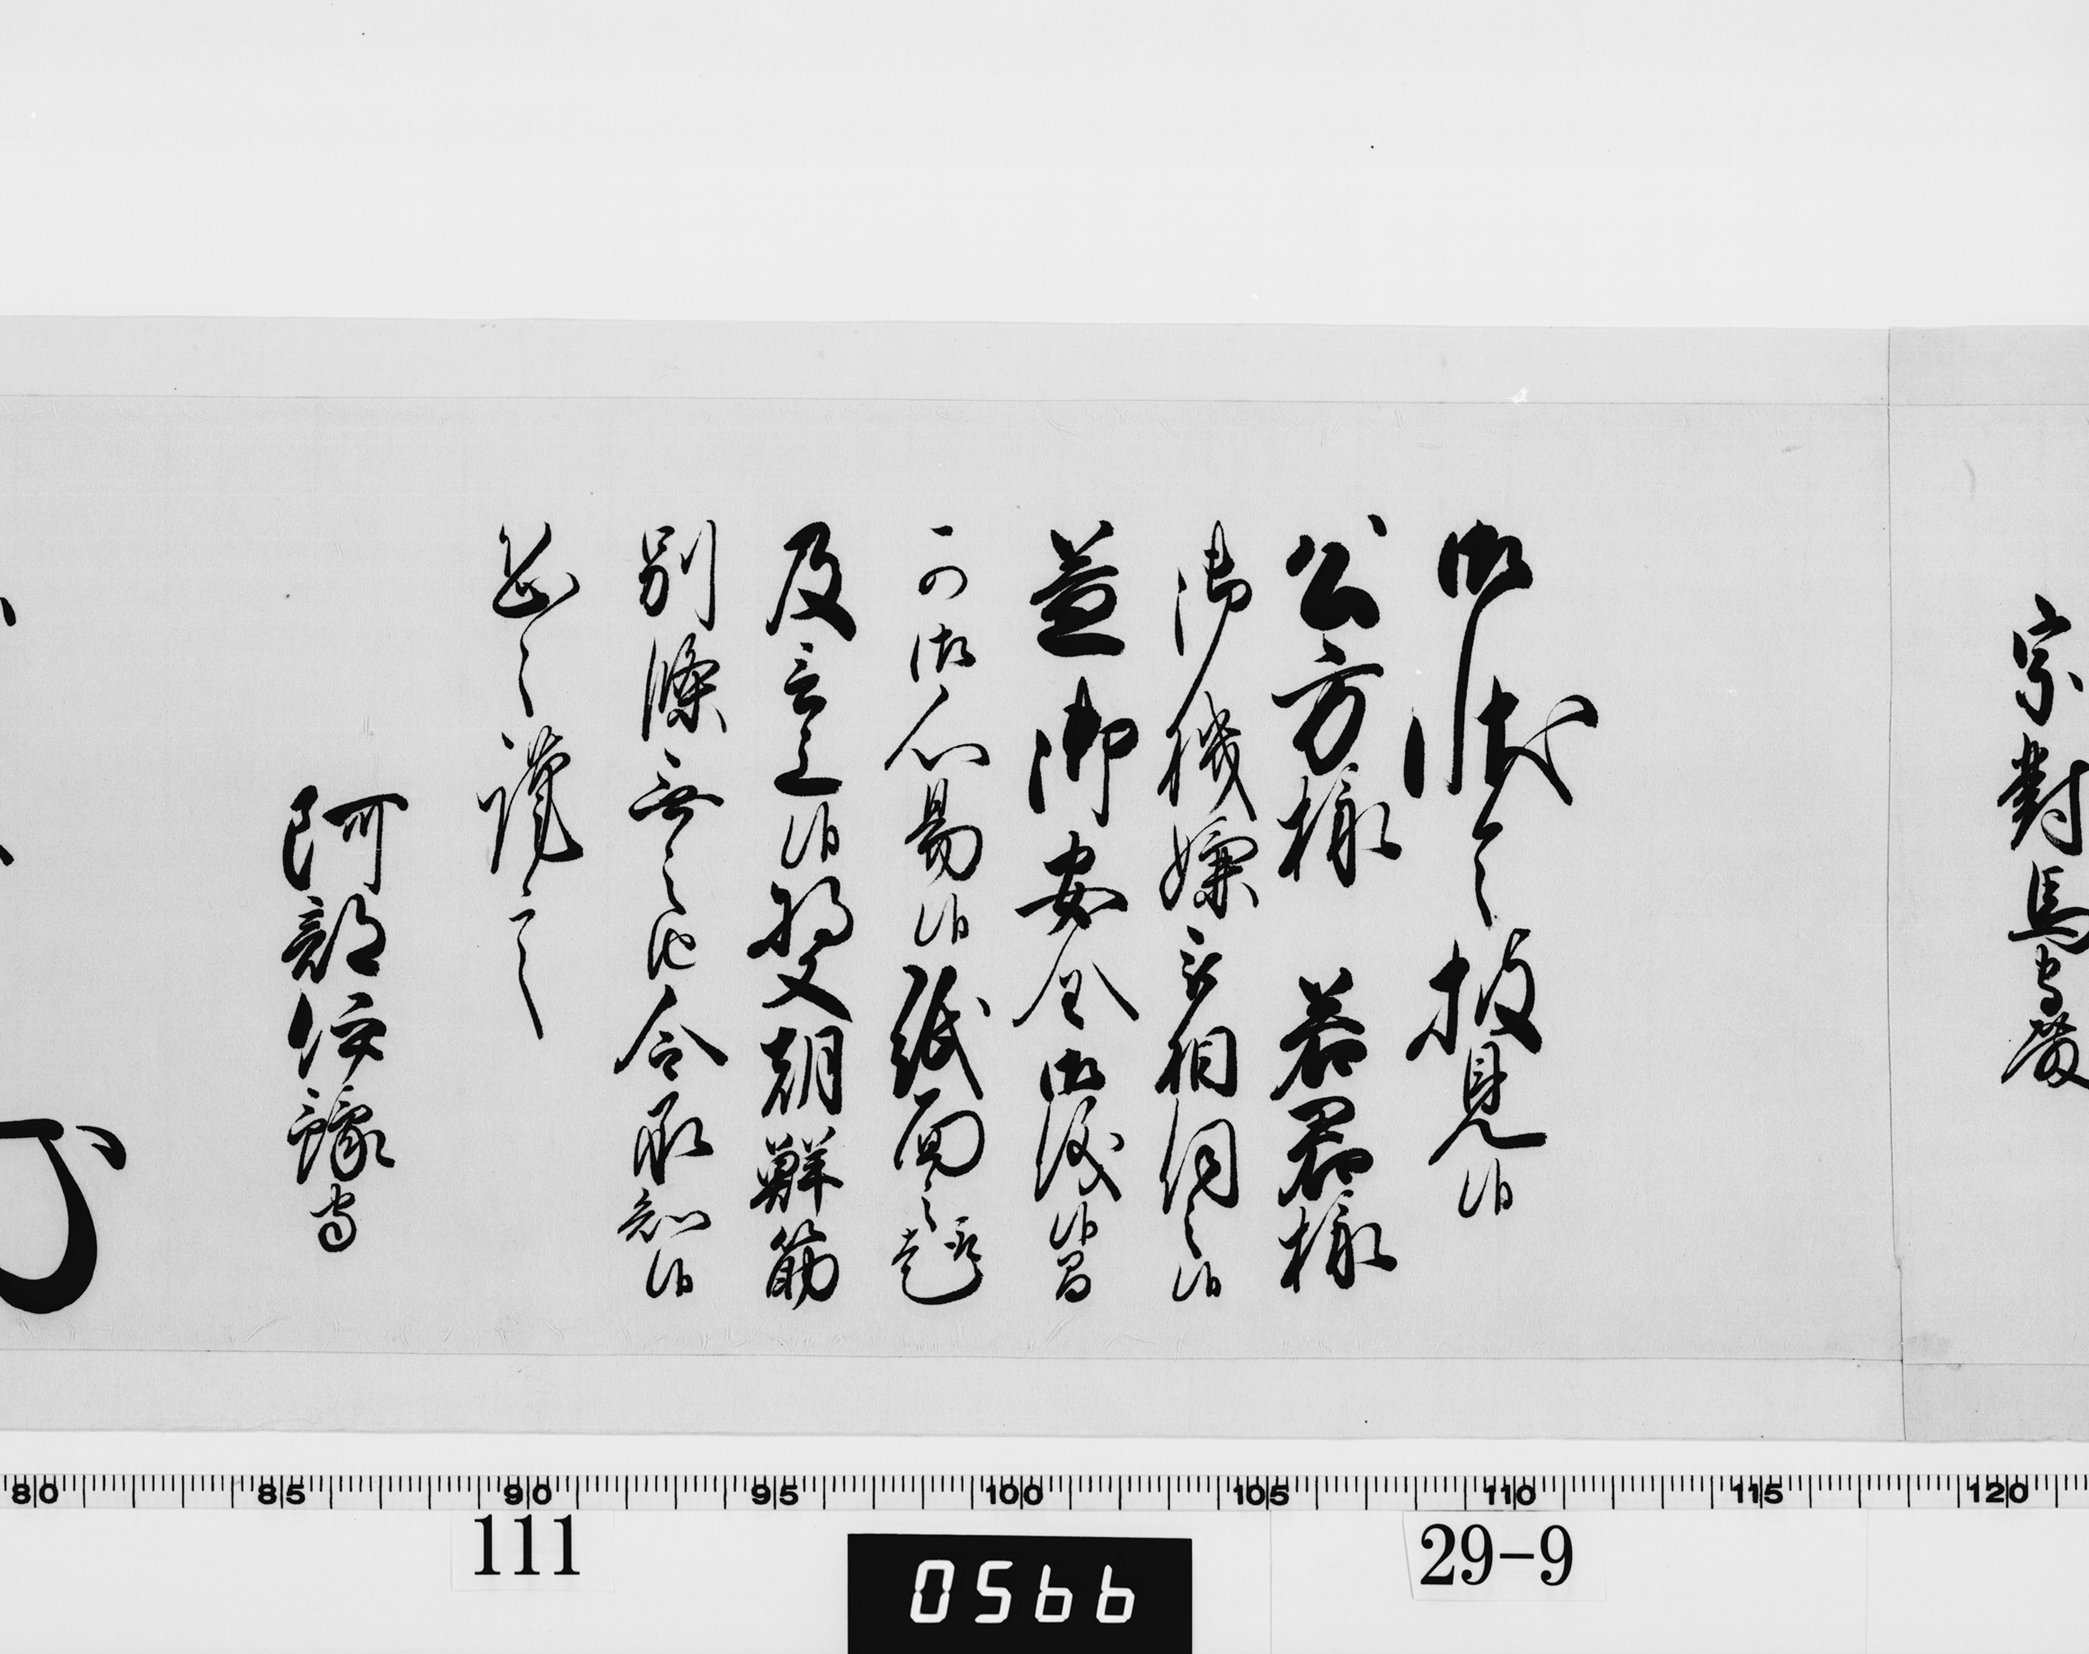 宗對馬守殿
御状令披見候
公方様　若君様
御機嫌被相伺之候
益御安全御儀候間
可御心易候紙面之趣
及言上候將又朝鮮筋
別條無之 令承知候
恐々謹言
阿部伊豫守
80 85 90 95 100 105 110 115 120
111
0566
29-9